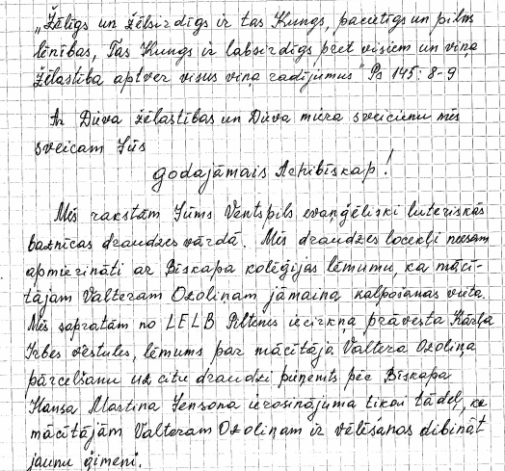 „Žēlīgs un žēlsirdīgs ir tas Kungs, pacietīgs un pilns
lēnības, Tas Kungs ir labsirdīgs pret visiem un viņa
žēlastība aptver visus viņa radījumus" Ps 145: 8-9
Ar Dieva žēlastības un Dieva miera sveicienu mēs
sveicam Jūs
godajāmais Arhibīskap!
Mēs rakstām Jūms Ventspils evaņģēliski luteriskās
baznīcas draudzes vārdā. Mēs draudzes locekļi neesam
apmierināti ar Bīskapa kolēģijas lēmumu, ka mācī-
tājam Valteram Ozoliņam jāmaina kalpošanas vieta.
Mēs sapratām no LELB Piltenes iecirkņa prāvesta Kārļa
Irbes vēstules, lēmums par mācītāja Valtera Ozoliņa
pārcelšanu uz citu draudzi pieņemts pēc Bīskapa
Hansa Martina Jensona ierosinājuma tikai tādēļ, ka
mācītājām Valteram Ozoliņam ir vēlēšanas dibināt
jaunu ģimeni.